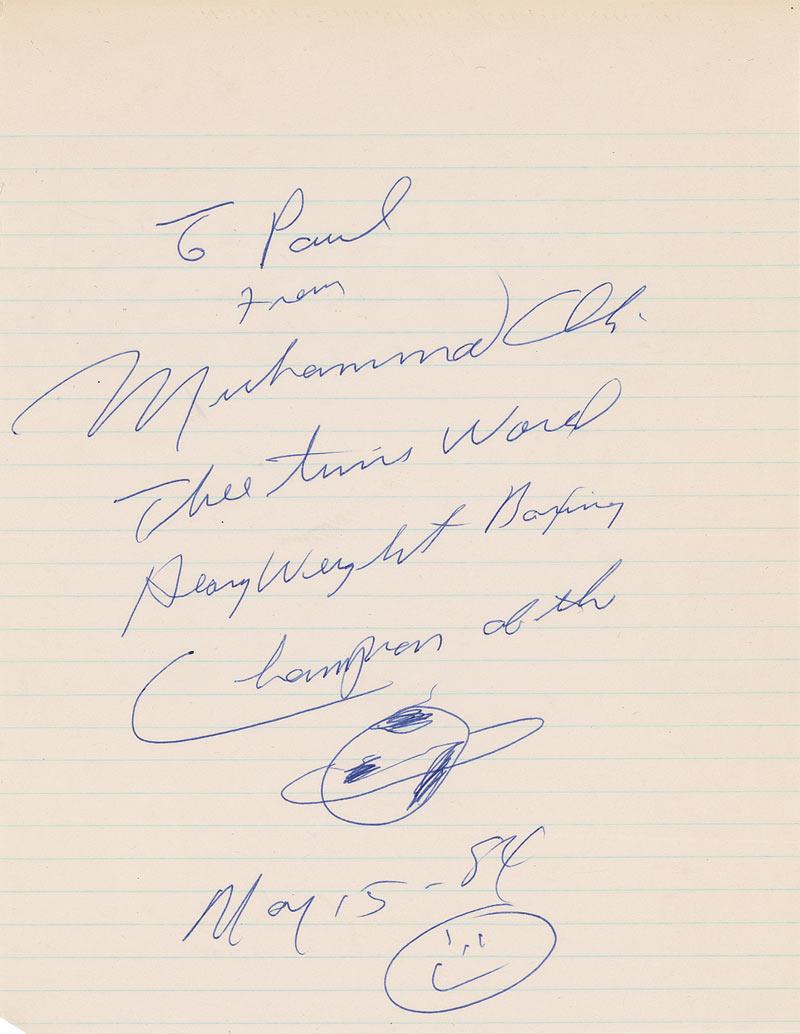 To Paul
From
Muhammad Ali
Thee times World
HeavyWeight Boxing
Champion of the
May 15 - 84